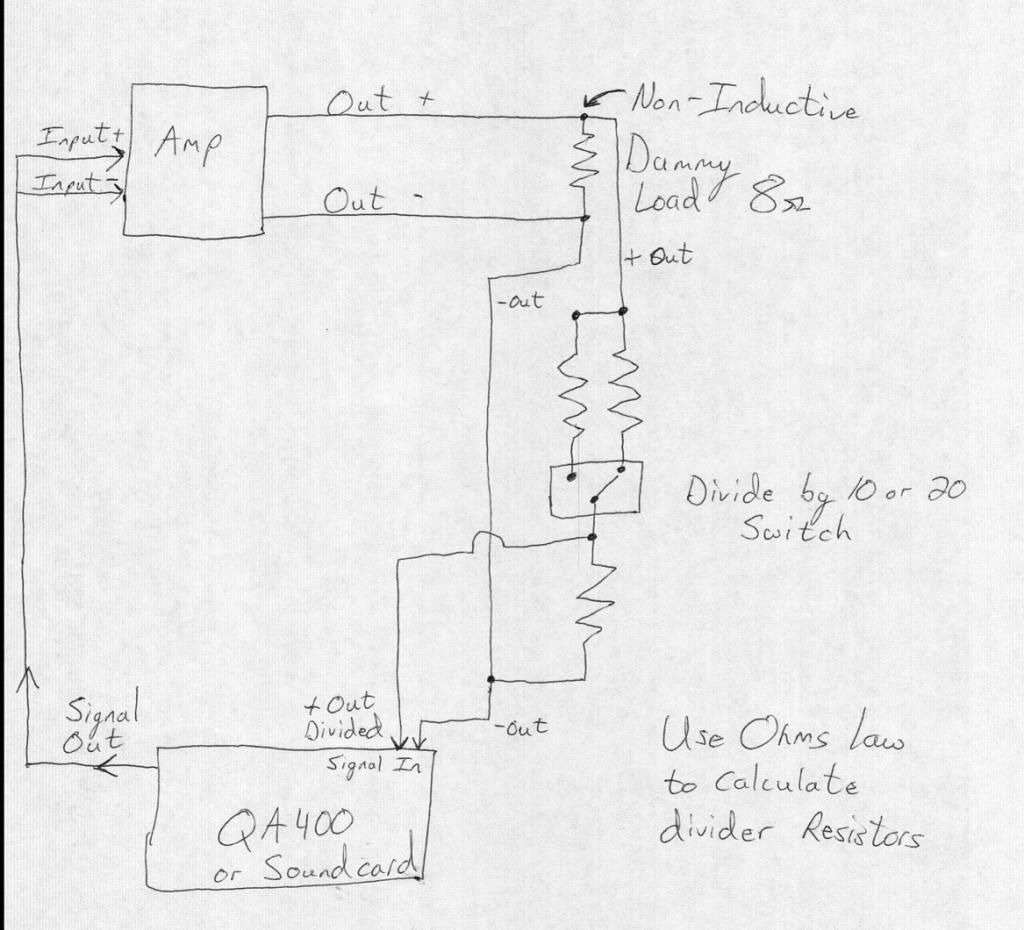 Out +
Non-Inductive
Input+
Amp
Dammy
Load 8Ω
Input -
Out -
+ Out
-out
Divide by 10 or 20
Switch
Signal
Out
+ Out
Divided
-out
Signal In
QA400
or Soundcard
Use Ohms Law
to Calculate
divider Resistors